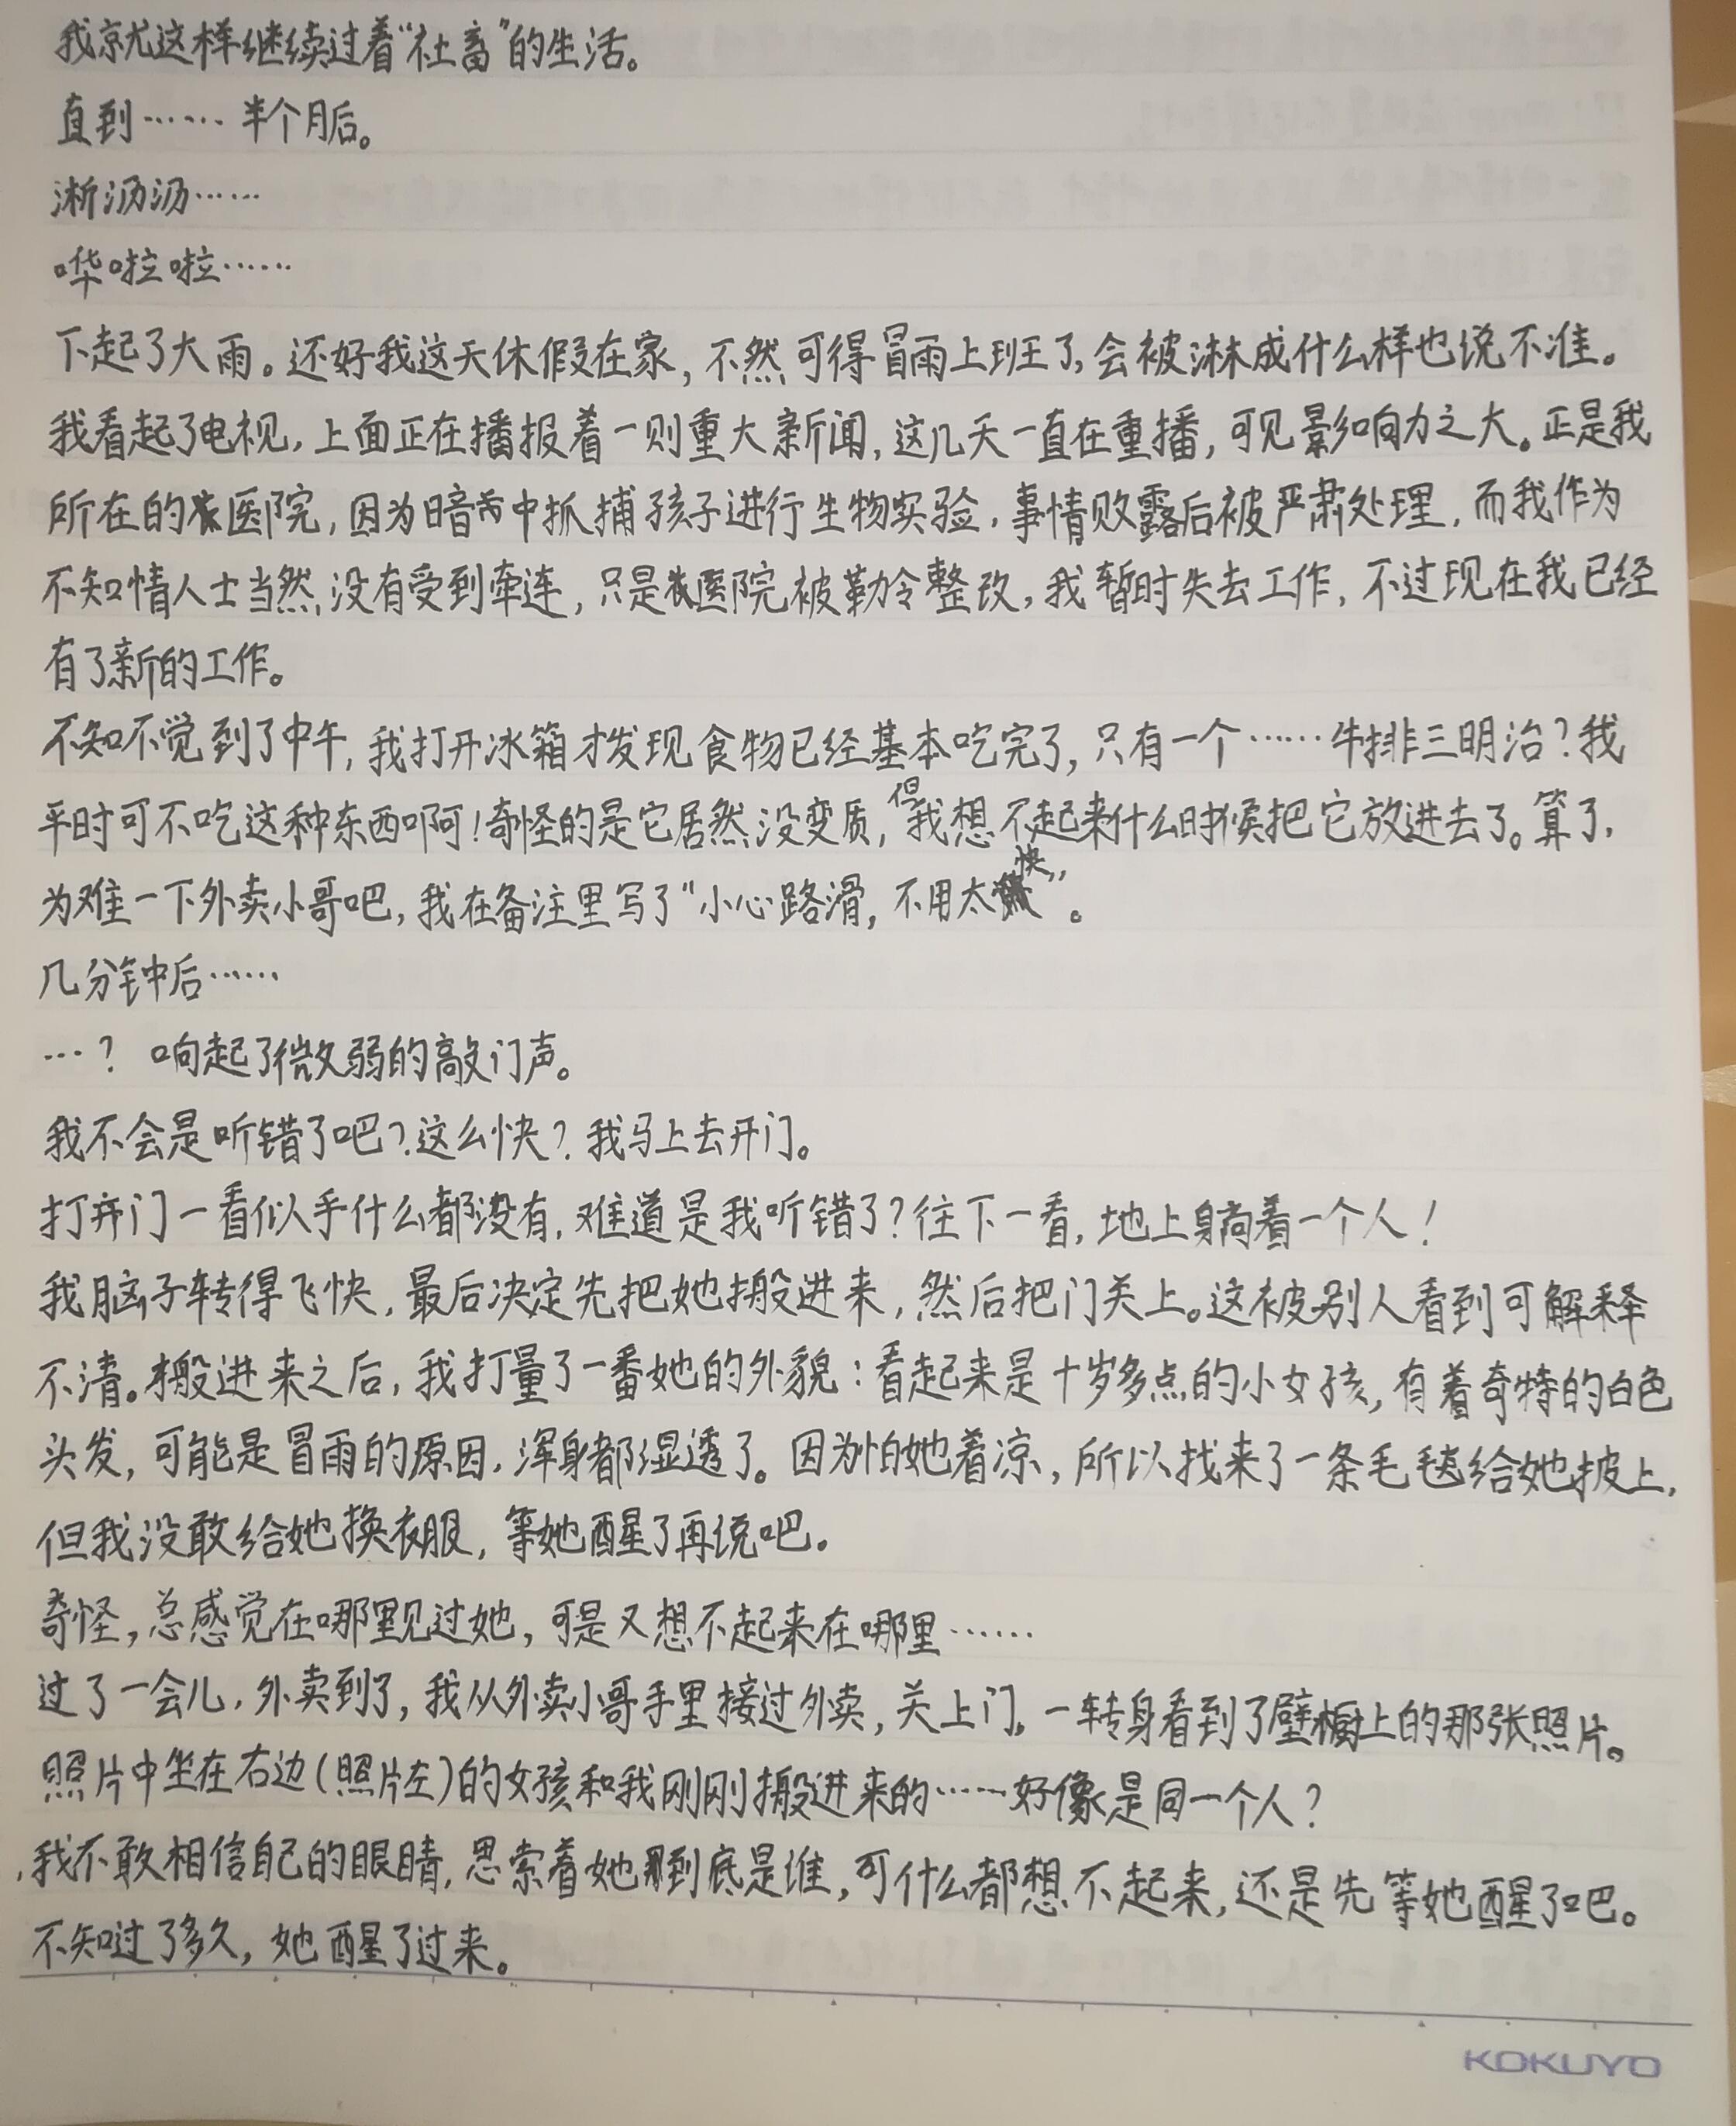 我就这样继续过着“社畜”的生活。
直到……半个月后。
淅沥沥……
哗啦啦……
下起了大雨。还好我这天休假在家，不然可得冒雨上班了，会被淋成什么样也说不准。
我看起了电视，上面正在播报着一则重大新闻，这几天一直在重播，可见影响力之大。正是我
所在的医院，因为暗中抓捕孩子进行生物实验，事情败露后被严肃处理，而我作为
不知情人士当然没有受到牵连，只是医院被勒令整改，我暂时失去工作，不过现在我已经
有了新的工作。
不知不觉到了中午，我打开冰箱才发现食物已经基本吃完了，只有一个……牛排三明治？我
平时可不吃这种东西啊！奇怪的是它居然没变质，但我想不起来什么时候把它放进去了。算了，
为难一下外卖小哥吧，我在备注里写了“小心路滑，不用太快”。
几分钟后……
…？ 响起了微弱的敲门声。
我不会是听错了吧？这么快？我马上去开门。
打开门一看似乎什么都没有，难道是我听错了？往下一看，地上躺着一个人！
我脑子转得飞快，最后决定先把她搬进来，然后把门关上。这被别人看到可解释
不清。搬进来之后，我打量了一番她的外貌：看起来是十岁多点的小女孩，有着奇特的白色
头发，可能是冒雨的原因，浑身都湿透了。因为怕她着凉，所以找来了一条毛毯给她披上，
但我没敢给她换衣服，等她醒了再说吧。
奇怪，总感觉在哪里见过她，可是又想不起来在哪里……
过了一会儿，外卖到了，我从外卖小哥手里接过外卖，关上门。一转身看到了壁橱上的那张照片。
照片中坐在右边（照片左）的女孩和我刚刚搬进来的……好像是同一个人？
我不敢相信自己的眼睛，思索着她到底是谁，可什么都想不起来，还是先等她醒了吧。
不知过了多久，她醒了过来。
KOKUYO